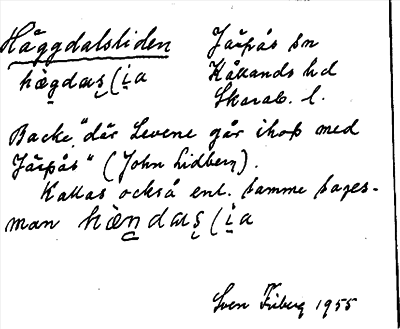 Häggdalsliden
hæ̀gdaʂ(i̯a
Järpås sn
Kållands hd
Skarab. l.
Backe "där Levene går ihop med
Järpås" (John Lidberg).
Kallas också enl. samme sages-
man hæ̀ndaʂ(i̯a
Sven Friberg 1955